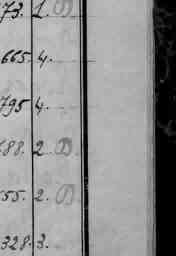 73. 1. D
665. 4.
795 4.
688. 2 D
55. 2. D
328. 3.